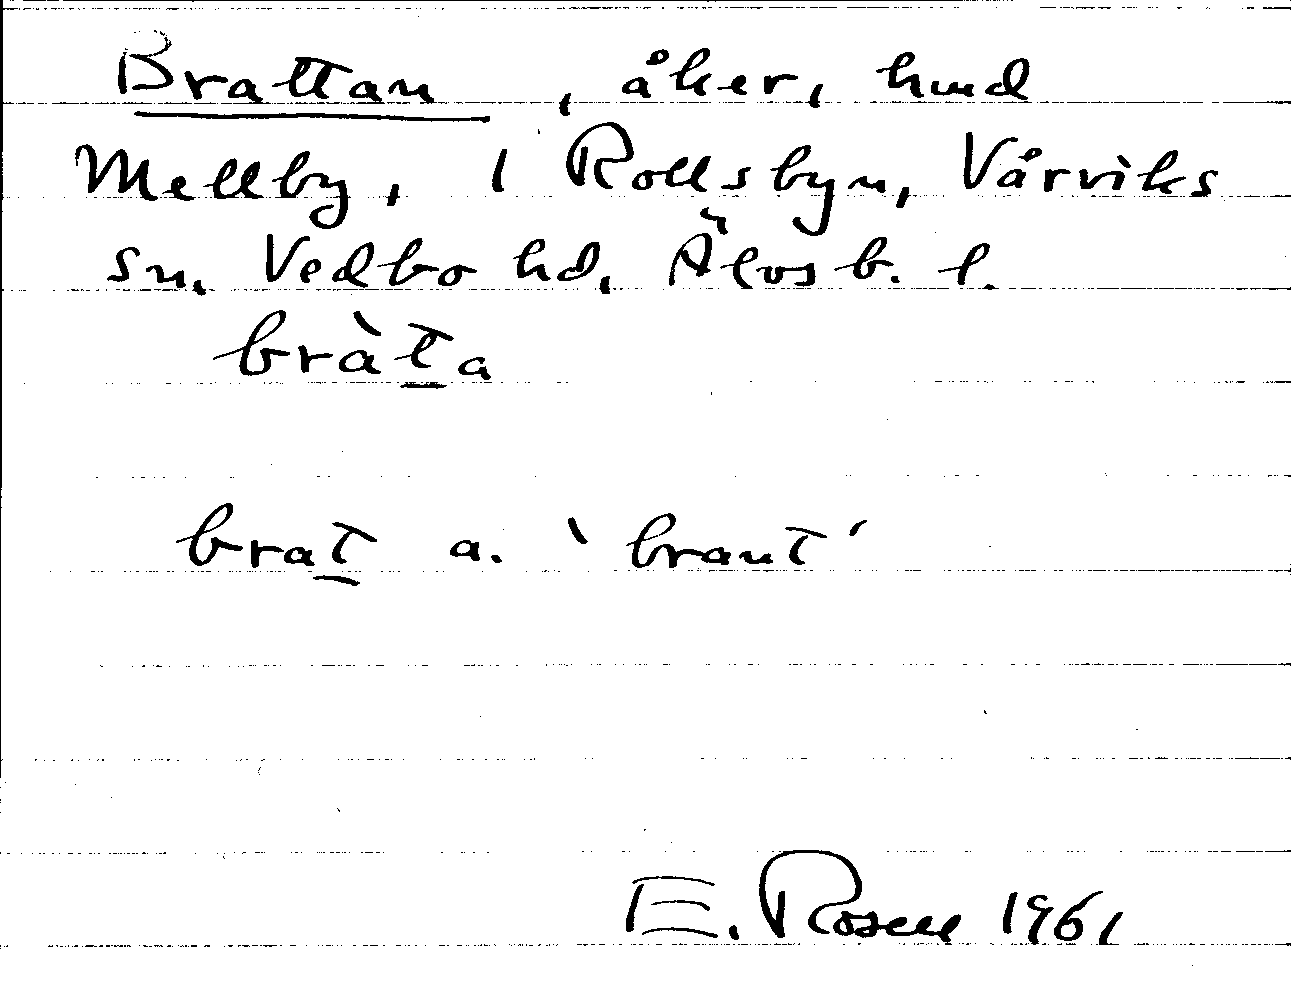 Brattan, åker, hmd
Mellby, i Rollsbyn, Vårviks
sn, Vedbo hd, Älvsb. l.
bràt̲a
brat̲ a. 'brant'
E. Rosell 1961